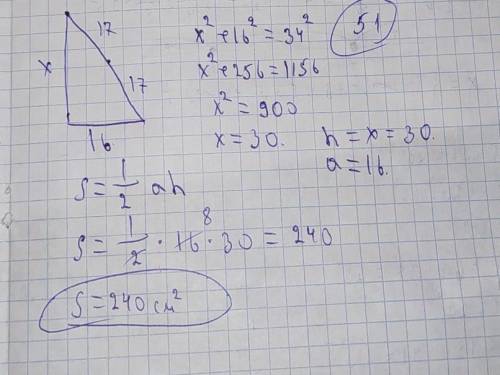 17
x² + 16² = 34²
51
x
x² + 256 = 1156
17
x² = 900
16
x = 30.
h = x = 30.
a = 16.
S = 1/2 ah
S = 1/2 · 16 · 30 = 240
8
S = 240 см²